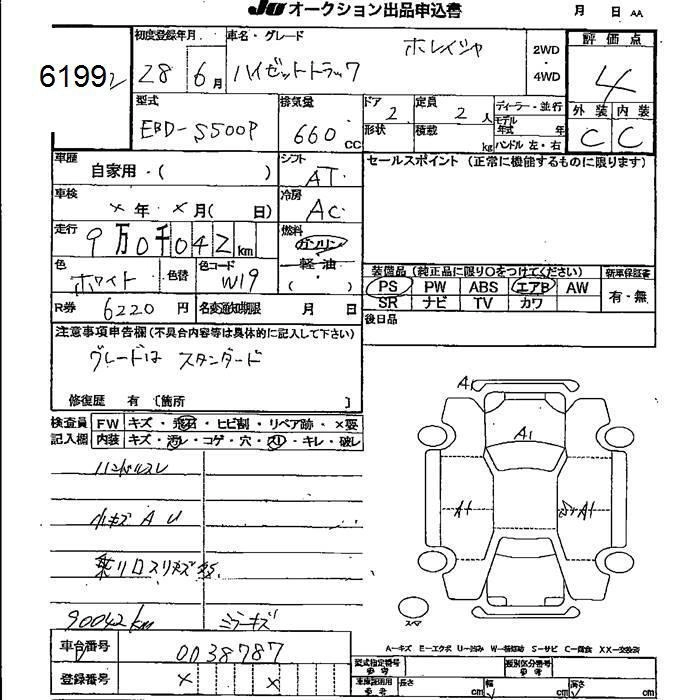 JU オークション出品申込書 月 日 AA
6199
初度登録年月 車名・グレード ホレイシャ 2WD ・ 4WD 評価点
28 6月 ハイゼットトラック 4
型式 排気量 ドア 定員 ディーラー・並行 外装 内装
EBD-S500P 660 CC 2 2人 モデル年式 年 C C
形状 積載 kg ハンドル 左・右
車歴 シフト セールスポイント (正常に機能するものに限ります)
自家用・( ) AT
車検 冷房
×年・×月( 日) AC
走行 燃料
9万0千042km ガソリン
軽油・( )
色 色替 色コード 装備品(純正品に限り○をつけてください) 新車保証書
ホワイト W19 PS PW ABS エアB AW 有・無
R券 6220円 名変通知期限 月 日 SR ナビ TV カワ
注意事項申告欄(不具合内容等は具体的に記入して下さい) 後日品
グレードは スタンダード
修復歴 有 [箇所 ]
検査員 FW キズ・飛石・ヒビ割・リペア跡・×要
記入欄 内装 キズ・汚レ・コゲ・穴・スリ・キレ・破レ
A1
A1
ハンドルスレ
A1 A1
小キズ A U
乗り口スリキズ
90042km ミラーキズ
スマ
A-キズ E-エクボ U-凹み W-補修跡 S-サビ C-腐食 XX-交換済
車台番号 0038787
型式指定番号 参考 類別区分番号
登録番号 × × 車庫証明用 参考 長さ cm 幅 cm 高さ cm